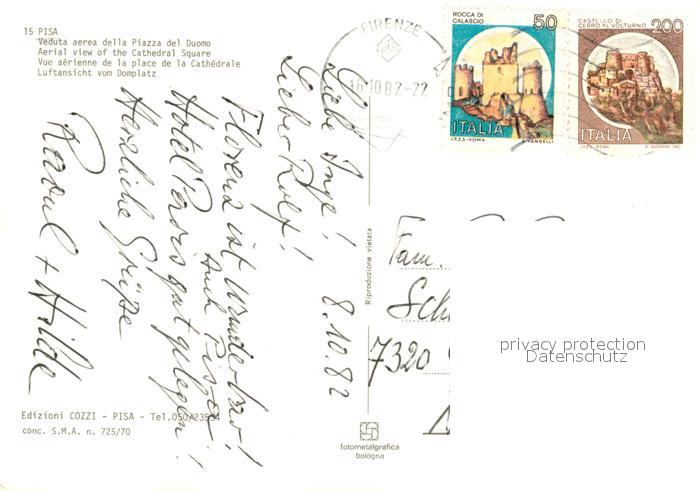 15 PISA
Veduta aerea della Piazza del Duomo
Aerial view of the Cathedral Square
Vue aérienne de la place de la Cathédrale
Luftansicht vom Domplatz
FIRENZE
16 10 82-22
ROCCA DI
CALASCIO
50
ITALIA
I.P.Z.S.-ROMA E. VANGELLI
CASTELLO DI
CERRO AL VOLTURNO
200
ITALIA
I.P.Z.S.-ROMA
8.10.82
Liebe Inge!
Lieber Rolf!
Florenz ist wunderbar!
Auch Pisa!
Hotel gut gelegen!
Herzliche Grüße
Raoul + Hilde
Riproduzione vietata
Fam.
Sch
7320
privacy protection
Datenschutz
Edizioni COZZI - PISA - Tel.050/
conc. S.M.A. n. 725/70
fotometalgrafica
bologna